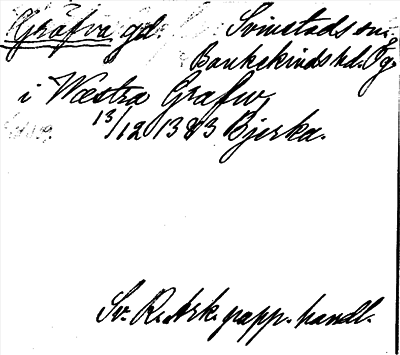 Gräfva gd. Svinstads sn.
Bankekinds hd. Ög.
i Wæstra Grafw
13/12 1383 Bjerka.
Sv. R. Ark. papp. handl.